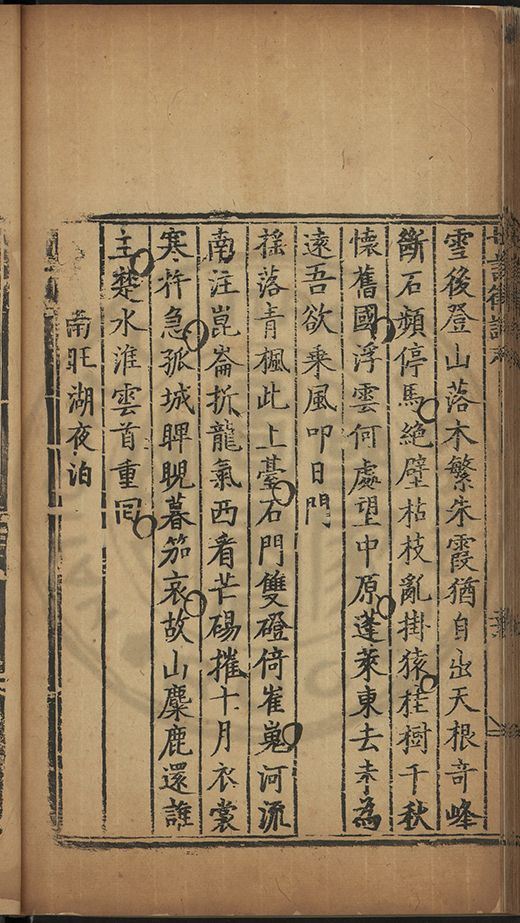 雪後登山落木繁朱霞猶自出天根奇峰
斷石頻停馬絕壁枯枝亂掛猿桂樹千秋
懷舊國浮雲何處望中原蓬萊東去未為
遠吾欲乘風叩日門
搖落青楓此上臺石門雙磴倚崔嵬河流
南注崑崙折龍氣西看芒碭摧十月衣裳
寒杵急孤城睥睨暮笳哀故山麋鹿還誰
主楚水淮雲首重囘
南旺湖夜泊